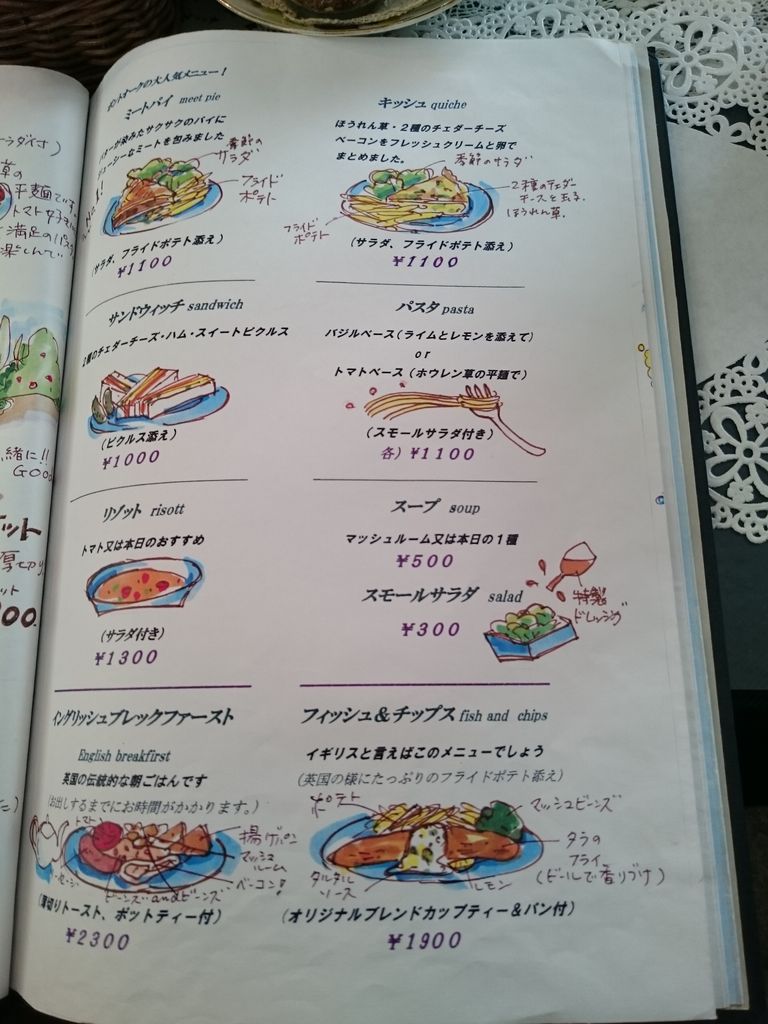 ラダ付)
草の
平麺です。
満足のパスタ
楽しんで
緒に!!
ット
厚切り
ット
00.
の大人気メニュー!
ミートパイ meet pie
が染みたサクサクのパイに
ジューシーなミートを包みました
季節の
サラダ
フライド
ポテト
(サラダ、フライドポテト添え)
¥1100
キッシュ quiche
ほうれん草・2種のチェダーチーズ
ベーコンをフレッシュクリームと卵で
まとめました。
季節のサラダ
2種のチェダー
チーズと玉子、
ほうれん草。
フライド
ポテト
(サラダ、フライドポテト添え)
¥1100
サンドウィッチ sandwich
種のチェダーチーズ・ハム・スイートピクルス
(ピクルス添え)
¥1000
パスタ pasta
バジルベース(ライムとレモンを添えて)
or
トマトベース(ホウレン草の平麺で)
(スモールサラダ付き)
各) ¥1100
リゾット risott
トマト又は本日のおすすめ
(サラダ付き)
¥1300
スープ soup
マッシュルーム又は本日の1種
¥500
スモールサラダ salad
¥300
特製
ドレッシング
イングリッシュブレックファースト
English breakfirst
英国の伝統的な朝ごはんです
(お出しするまでにお時間がかかります。)
トマト
揚げパン
マッシュ
ルーム
ベーコン!
ビーンズandビーンズ
(薄切りトースト、ポットティー付)
¥2300
フィッシュ&チップス fish and chips
イギリスと言えばこのメニューでしょう
(英国の様にたっぷりのフライドポテト添え)
ポテト
マッシュビーンズ
タラの
フライ
(ビールで香りづけ)
タルタル
ソース
レモン
(オリジナルブレンドカップティー&パン付)
¥1900